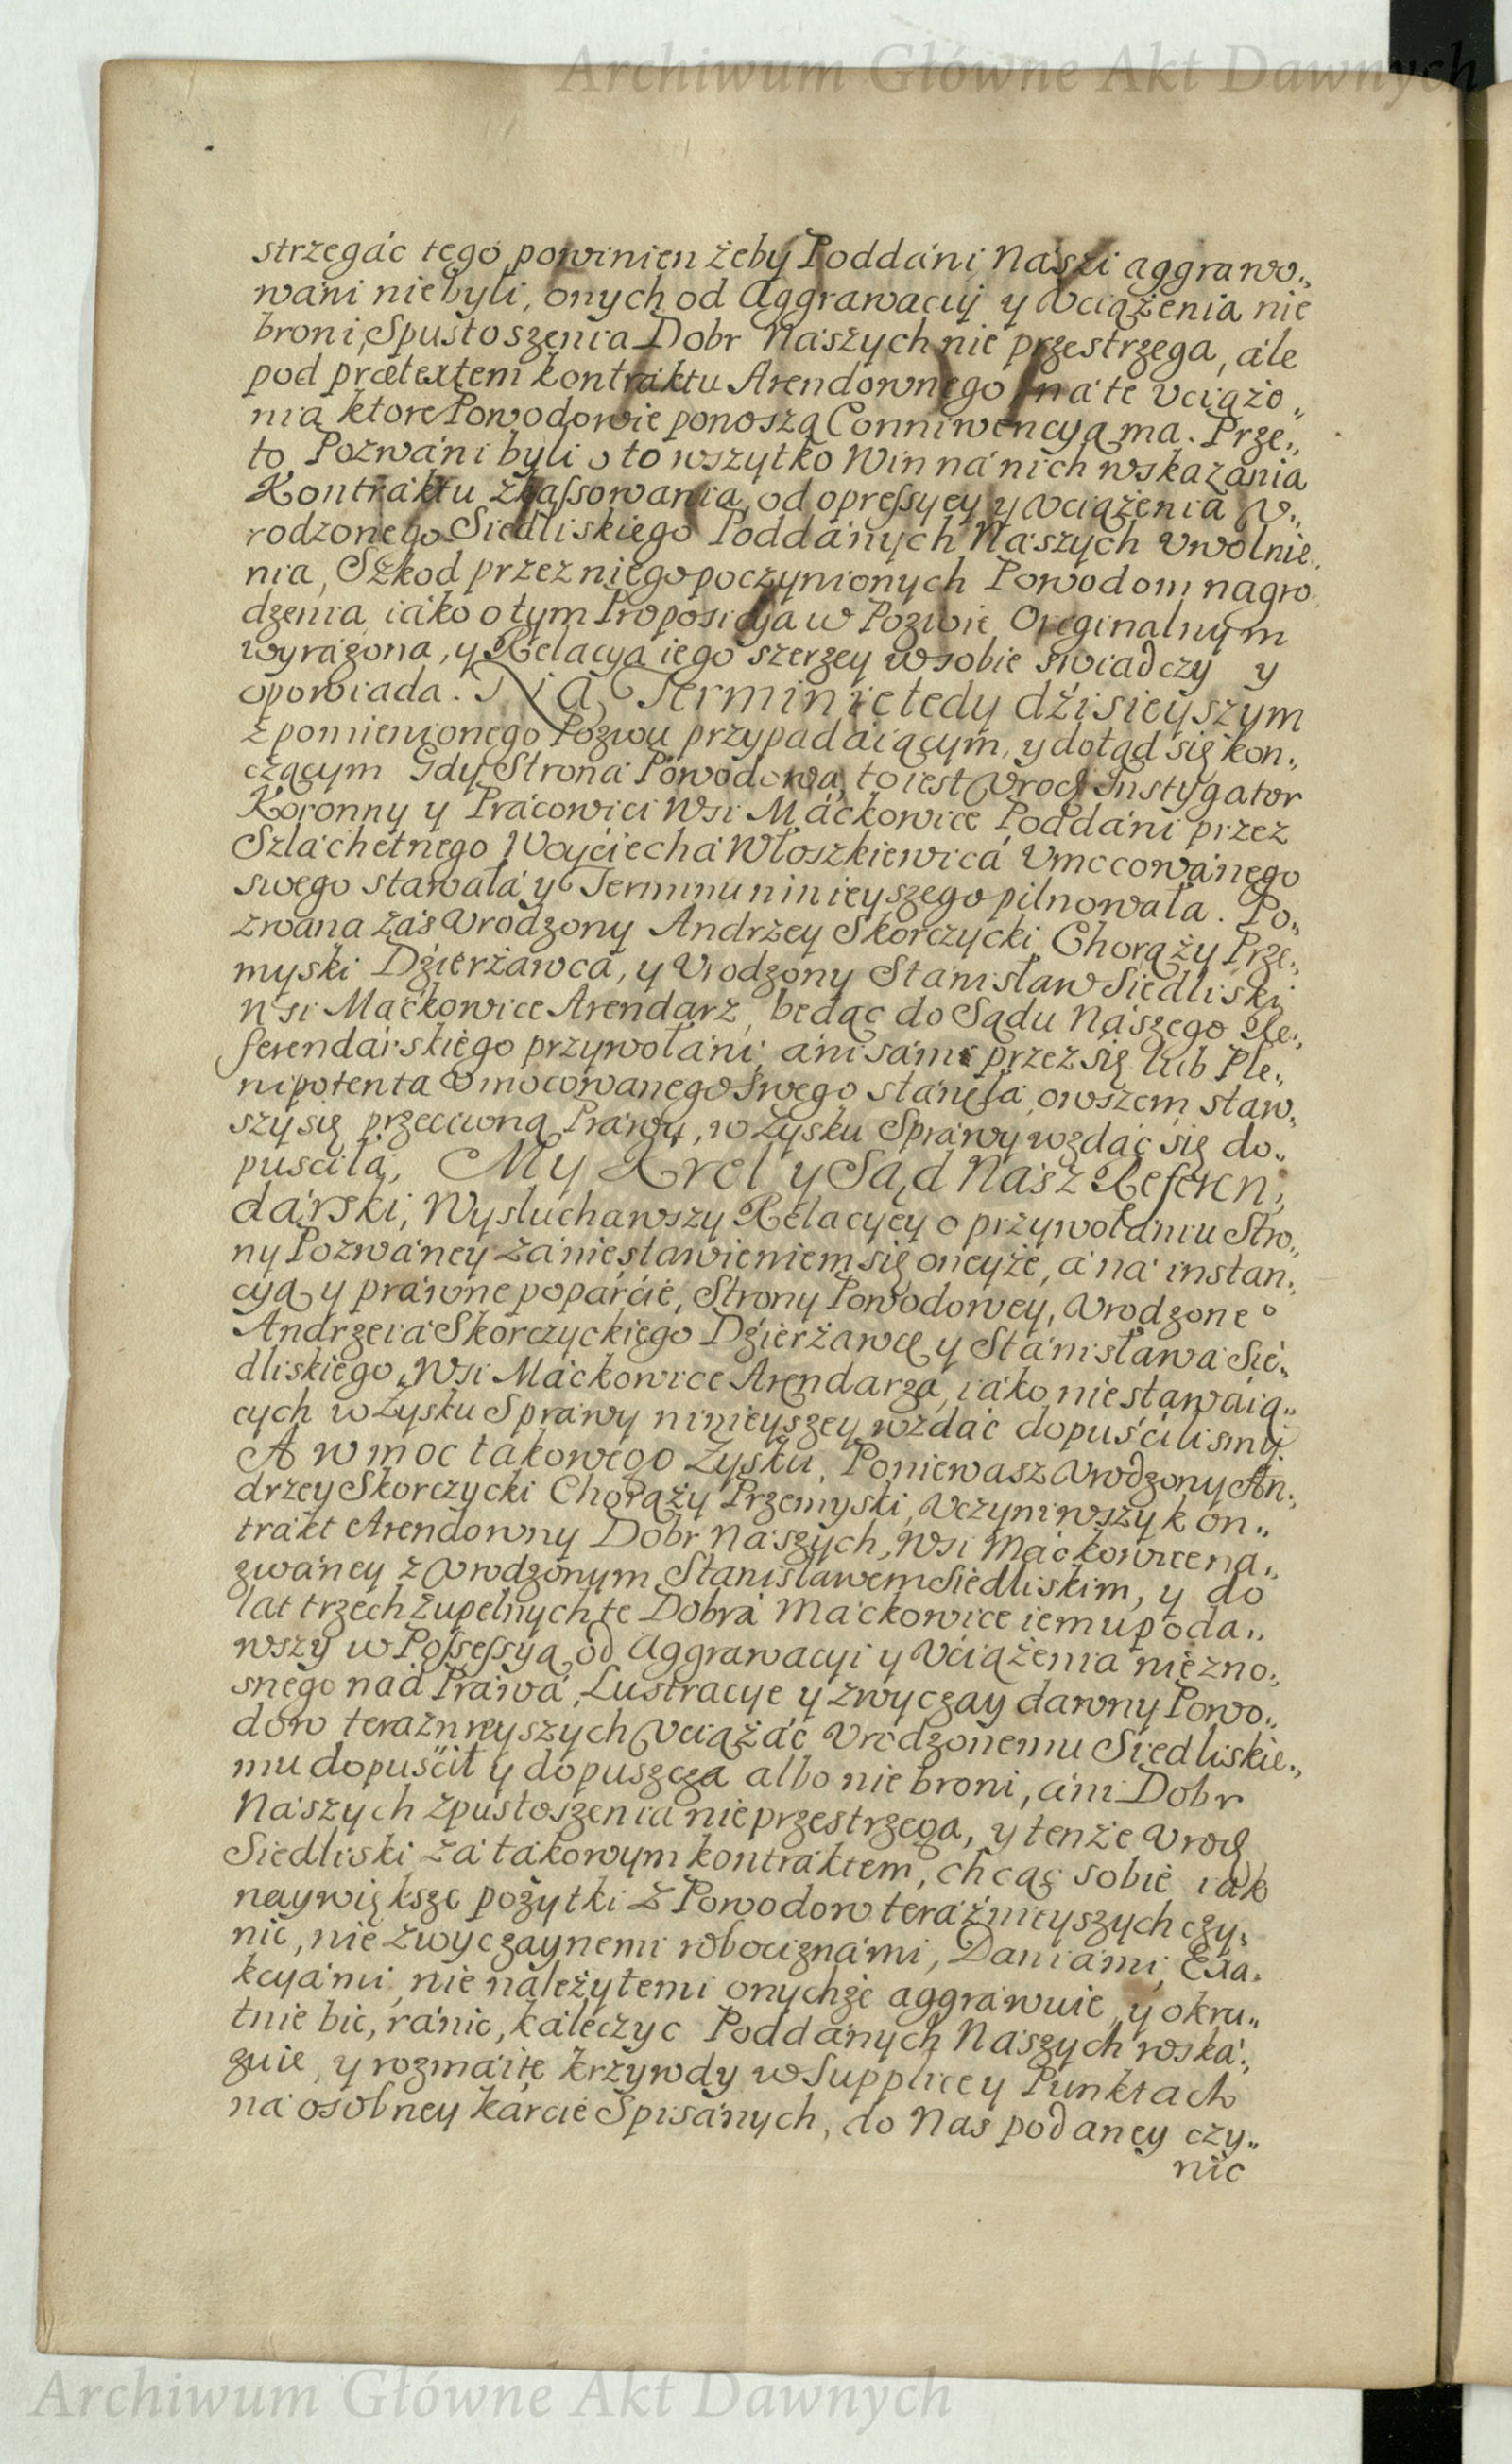 Archiwum Główne Akt Dawnych
strzegać tego powinien żeby Poddáni Nászi aggrawo„
wáni niebyli, onych od Aggrawacyi y Vciążenia nie
broni, Spustoszenia Dobr Nászych nie przestrzega, ále
pod prætextem kontráktu Arendownego ná te vciąże„
nia ktore Powodowie ponoszą Conniwencyą ma. Prze„
to Pozwáni byli o to wszytko Win ná nich wskazánia
Kontráktu zkassowania, od opressyey y vciążenia V„
rodzonego Siedliskiego Poddánych Nászych vwolnie„
nia, Szkod przez niego poczynionych Powodom nagro„
dzenia, iáko o tym Proposicya w Pozwie Originalnym
wyráżona, y Relacya iego szerzey w sobie swiadczy y
opowiada. Ná Terminie tedy dźisieyszym
z pomienionego Pozwu przypadáiącym, y dotąd się kon„
czącym Gdy Stroná Powodowa, to iest Vrodz Instygator
Koronny y Prácowici Wsi Máckowice Poddáni przez
Szláchetnego Woyciechá Włoszkiewicá Vmocowánego
swego stawałá y Terminu ninieyszego pilnowáła. Po„
zwana záś Vrodzony Andrzey Skorczycki Chorąży Prze„
myski Dzierżáwcá, y Vrodzony Stánisław Siedliski
Wsi Máckowice Arendarz, będąc do Sądu Nászego Re„
ferendárskiego przywołáni, áni sámi przez się lub Ple„
nipotenta Vmocowanego swego stánęłá, owszem staw„
szy się przeciwną Práwu, w Zysku Spráwy wzdáć się do„
puściłá, My Krol y Sąd Nász Referen„
dárski, Wysłuchawszy Relacyey o przywołániu Stro„
ny Pozwáney zá niestawieniem się oneyże, á ná instan„
cyą y práwne popárćie, Strony Powodowey, Vrodzone⁰
Andrzeiá Skorczyckiego Dzierżáwcę y Stánisławá Sie„
dliskiego, Wsi Máckowice Arendarzá, iáko niestawáią„
cych w Zysku Spráwy ninieyszey wzdáć dopuścilismy
A w moc takowego Zysku, Poniewasz Vrodzony An„
drzey Skorczycki Chorąży Przemyski, Vczyniwszy kon„
trákt Arendowny Dobr Nászych, Wsi Máckowice na„
zwáney z Vrodzonym Stanisławem Siedliskim, y do
lat trzech zupełnych te Dobrá Máckowice iemu poda„
wszy w Possessyą od Aggrawacyi y Vciążenia niezno„
snego nád Práwá, Lustracye, y zwyczay dawny Powo„
dow teraznieyszych Vciążáć Vrodzonemu Siedliskie„
mu dopuśćił y dopuszcza albo nie broni, áni Dobr
Nászych zpustoszenia nie przestrzega, y tenże Vrodz
Siedliski zá tákowym kontráktem, chcąc sobie iák
naywiększe pożytki z Powodow teráźnieyszych czy„
nić, nie zwyczaynemi robociznámi, Daniámi, Exa„
kcyámi, nie należytemi onychże aggráwuie, y okru„
tnie bic, ránic, káleczyc Poddánych Nászych roská„
zuie, y rozmáite krzywdy w Supplice y Punktach
ná osobney kárcie Spisánych, do Nas podaney czy„
nic
Archiwum Główne Akt Dawnych